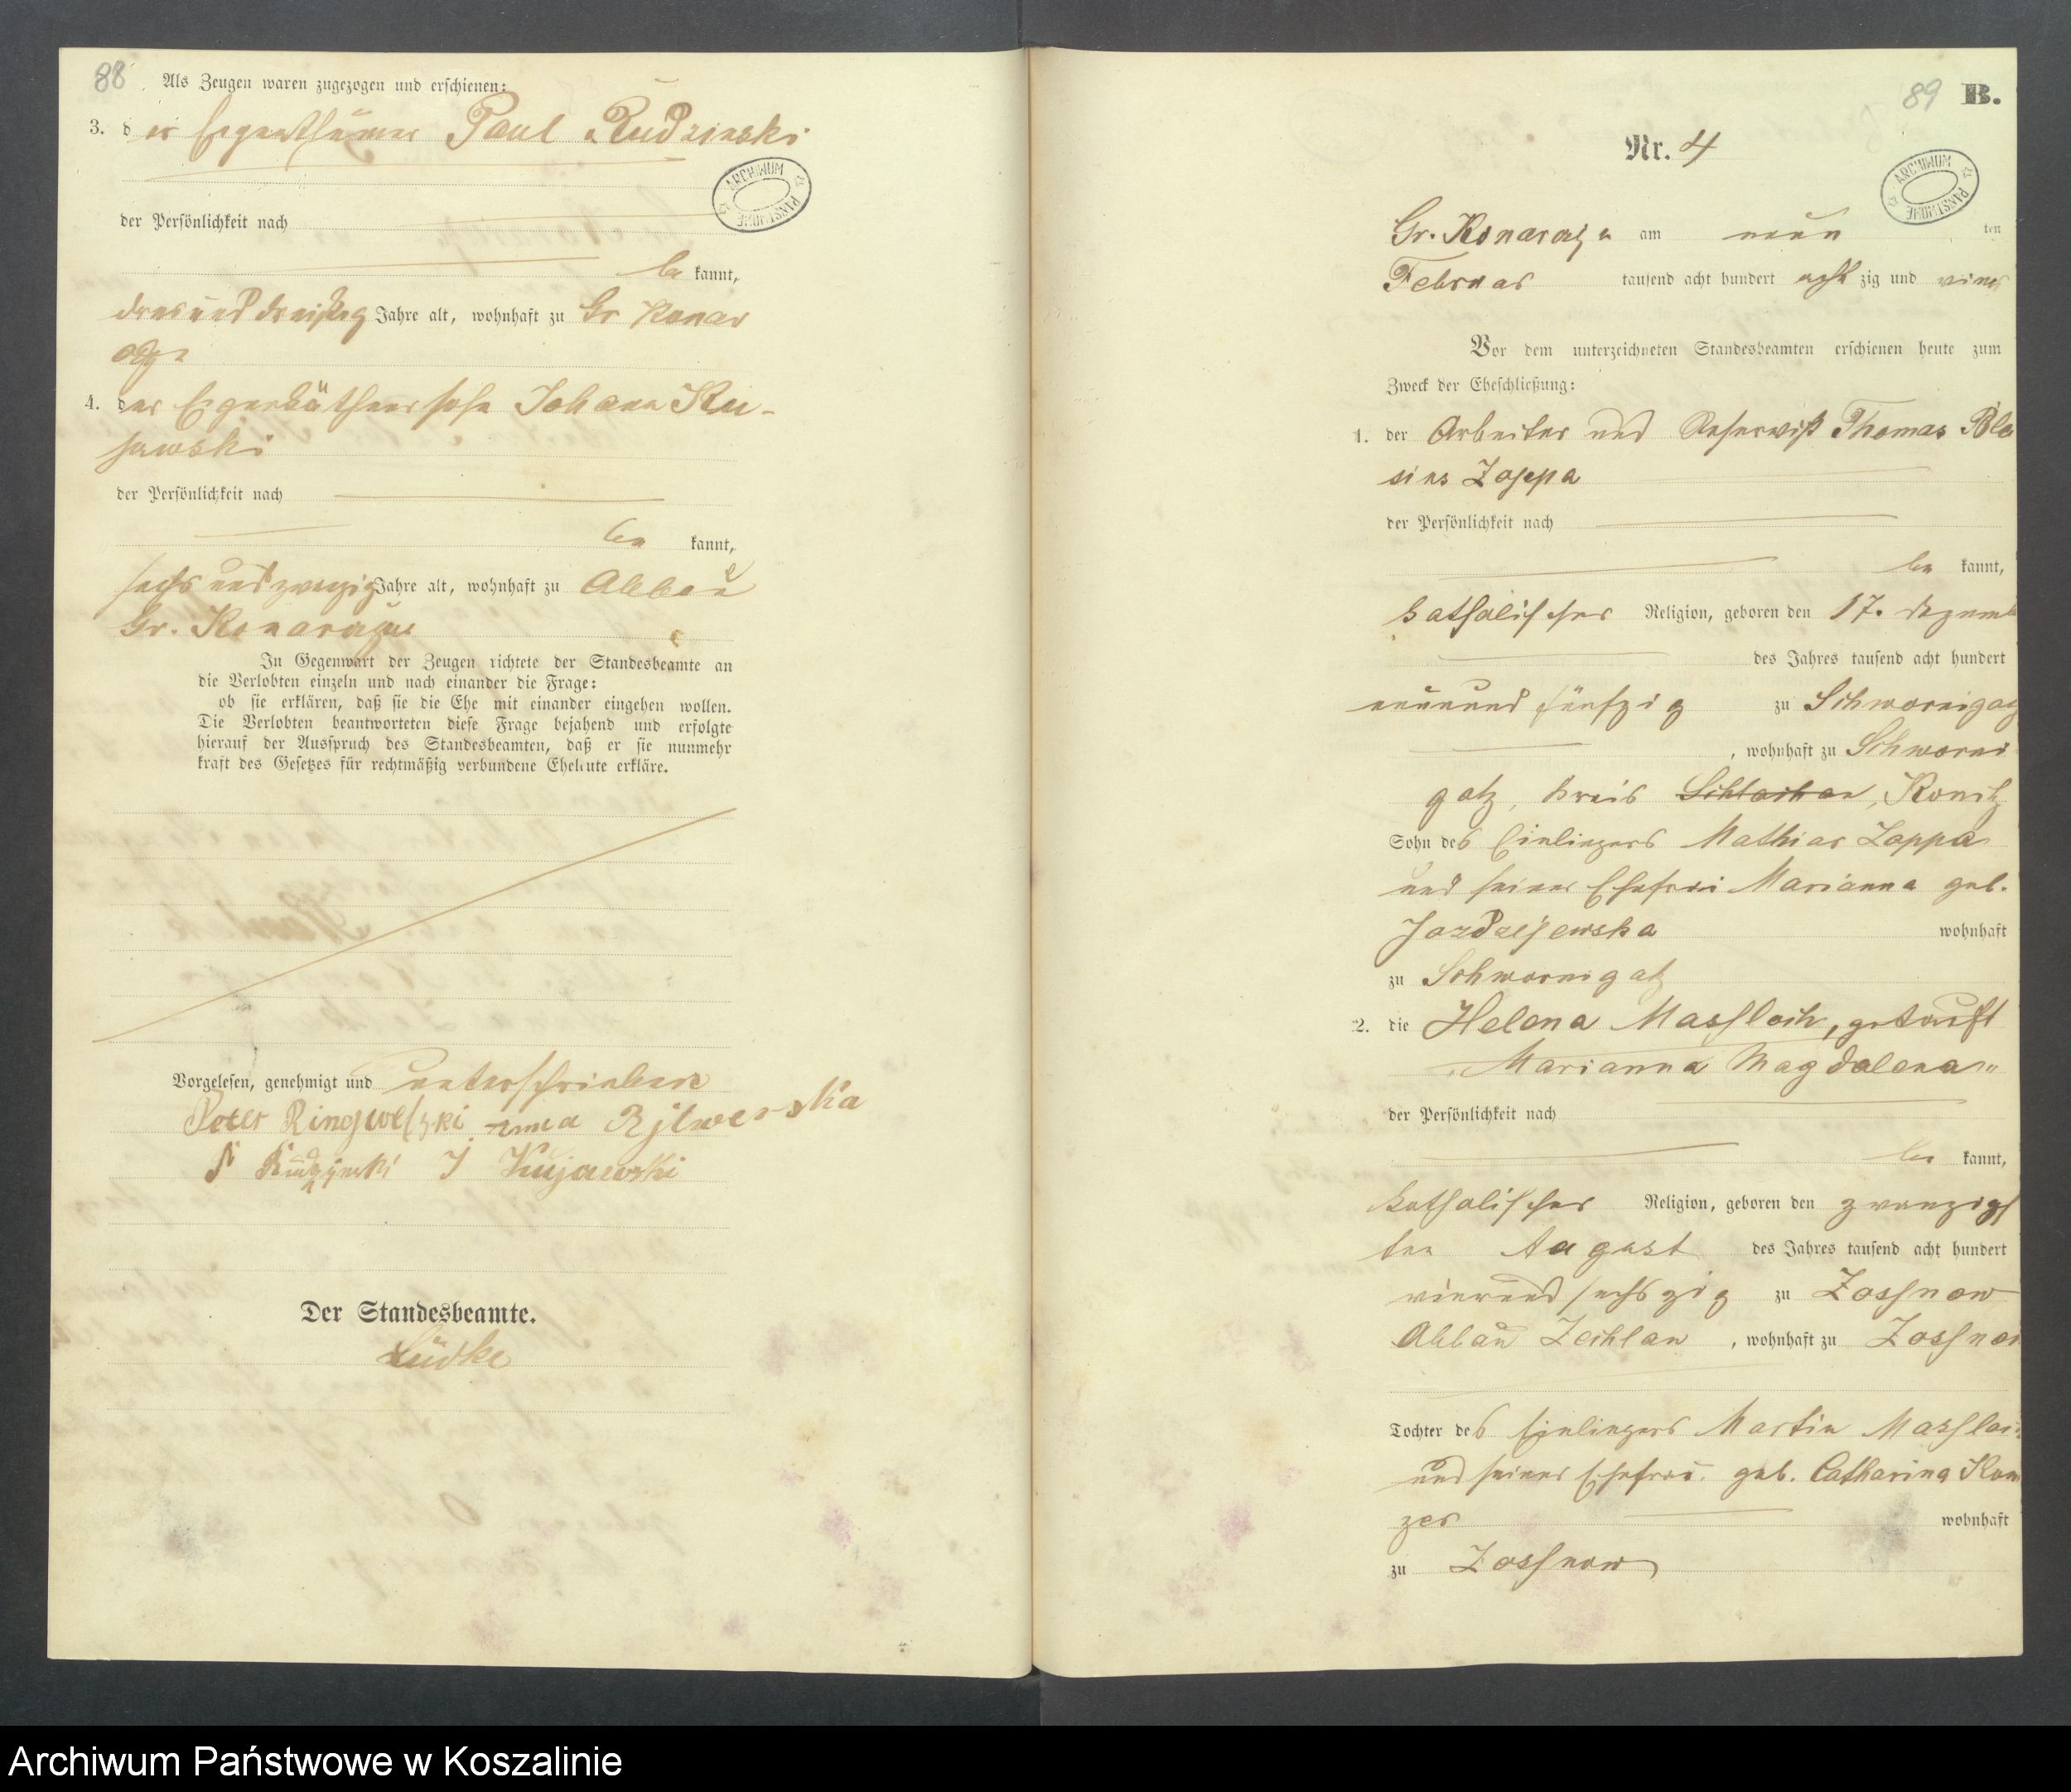 88
Als Zeugen waren zugezogen und erschienen:
3. der Eigenthümer Paul Rudzinski
ARCHIWUM PAŃSTWOWE
der Persönlichkeit nach
be kannt,
drei und dreißig Jahre alt, wohnhaft zu Gr Konar
4. der Eigenkäthnersohn Johann Ku-
jawski
der Persönlichkeit nach
be kannt,
sechs und zwanzig Jahre alt, wohnhaft zu Abbau
Gr. Konarczyn
In Gegenwart der Zeugen richtete der Standesbeamte an
die Verlobten einzeln und nach einander die Frage:
ob sie erklären, daß sie die Ehe mit einander eingehen wollen.
Die Verlobten beantworteten diese Frage bejahend und erfolgte
hierauf der Ausspruch des Standesbeamten, daß er sie nunmehr
kraft des Gesetzes für rechtmäßig verbundene Eheleute erkläre.
Vorgelesen, genehmigt und unterschrieben
Peter Ringwelski
J Kujawski
Der Standesbeamte.
Lüdke
89 B.
Nr. 4
ARCHIWUM PAŃSTWOWE
Gr. Konarczyn am neun ten
Februar tausend acht hundert acht zig und vier
Vor dem unterzeichneten Standesbeamten erschienen heute zum
Zweck der Eheschließung:
1. der Arbeiter und Reservist Thomas Bla
sius Zappa
der Persönlichkeit nach
be kannt,
katholischer Religion, geboren den 17. Dezemb
des Jahres tausend acht hundert
neunund fünfzig zu Schwornigatz
, wohnhaft zu Schworni
gatz, Kreis Schlochau, Konitz
Sohn des Einliegers Mathias Zappa
und seiner Ehefrau Marianna geb.
Jazdzejewska wohnhaft
zu Schwornigatz
2. die Helena Massloch, getauft
„Marianna Magdalena"
der Persönlichkeit nach
be kannt,
katholischer Religion, geboren den zwanzigs
ten August des Jahres tausend acht hundert
vierund sechszig zu Zossnow
Abbau Zechlau, wohnhaft zu Zossnow
Tochter des Einliegers Martin Massloch
und seiner Ehefrau geb. Catharina
zer wohnhaft
zu Zossnow
Archiwum Państwowe w Koszalinie